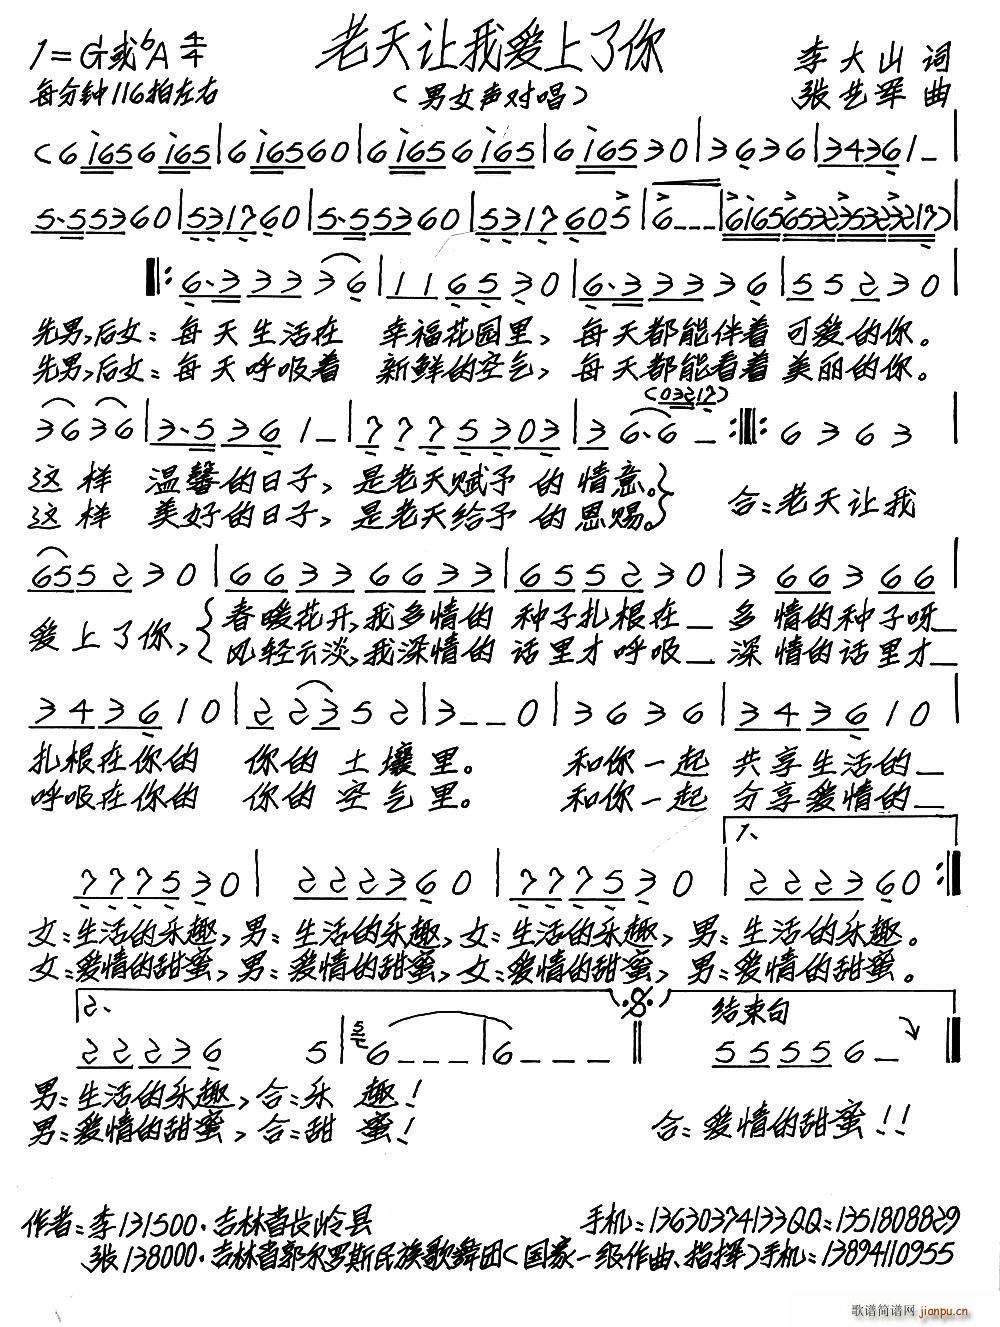 老天让我爱上了你
1=G或bA 4/4
李大山 词
每分钟116拍左右
(男女声对唱)
张艺军 曲
(6 i65 6 i65 | 6 i65 60 | 6 i65 6 i65 | 6 i65 30 | 3 6 3 6 | 3436 1 - |
5·5 5360 | 5317 60 | 5·5 5360 | 5317 60 5 | 6 - - - | 6i65 6532 3532 3217) |
‖: 6·3 3 3 3 3 6 | 1 1 6 5 3 0 | 6·3 3 3 3 3 6 | 5 5 2 3 0 |
先男,后女: 每天生活在 幸福花园里, 每天都能伴着 可爱的你。
先男,后女: 每天呼吸着 新鲜的空气, 每天都能看着 美丽的你。
(03217)
3 6 3 6 | 3·5 3 6 1 - | 7 7 7 5 3 0 3 | 3 6·6 - :‖: 6 3 6 3 |
这样 温馨的日子, 是老天赋予 的情意。
这样 美好的日子, 是老天给予 的恩赐。 合:老天让我
65 5 2 3 0 | 6 6 3 3 6 6 3 3 | 6 5 5 2 3 0 | 3 6 6 3 6 6 |
爱上了你, 春暖花开,我多情的 种子扎根在_ 多情的种子呀_
风轻云淡,我深情的 话里才呼吸_ 深情的话里才_
3 4 3 6 1 0 | 2 2 3 5 2 | 3 - - 0 | 3 6 3 6 | 3 4 3 6 1 0 |
扎根在你的 你的土壤里。 和你一起 共享生活的_
呼吸在你的 你的空气里。 和你一起 分享爱情的_
1、
7 7 7 5 3 0 | 2 2 2 3 6 0 | 7 7 7 5 3 0 | 2 2 2 3 6 0 :‖
女:生活的乐趣, 男:生活的乐趣, 女:生活的乐趣, 男:生活的乐趣。
女:爱情的甜蜜, 男:爱情的甜蜜, 女:爱情的甜蜜, 男:爱情的甜蜜。
2、 结束句
2 2 2 3 6 5 | 6 - - - | 6 - - - ‖ 5 5 5 5 6 - ‖
男:生活的乐趣, 合:乐 趣!
男:爱情的甜蜜, 合:甜 蜜! 合:爱情的甜蜜!!
作者:李131500·吉林省长岭县 手机:13630374133QQ:1351808829
张138000·吉林省郭尔罗斯民族歌舞团(国家一级作曲、指挥)手机:13894110955
歌谱简谱网
jianpu.cn